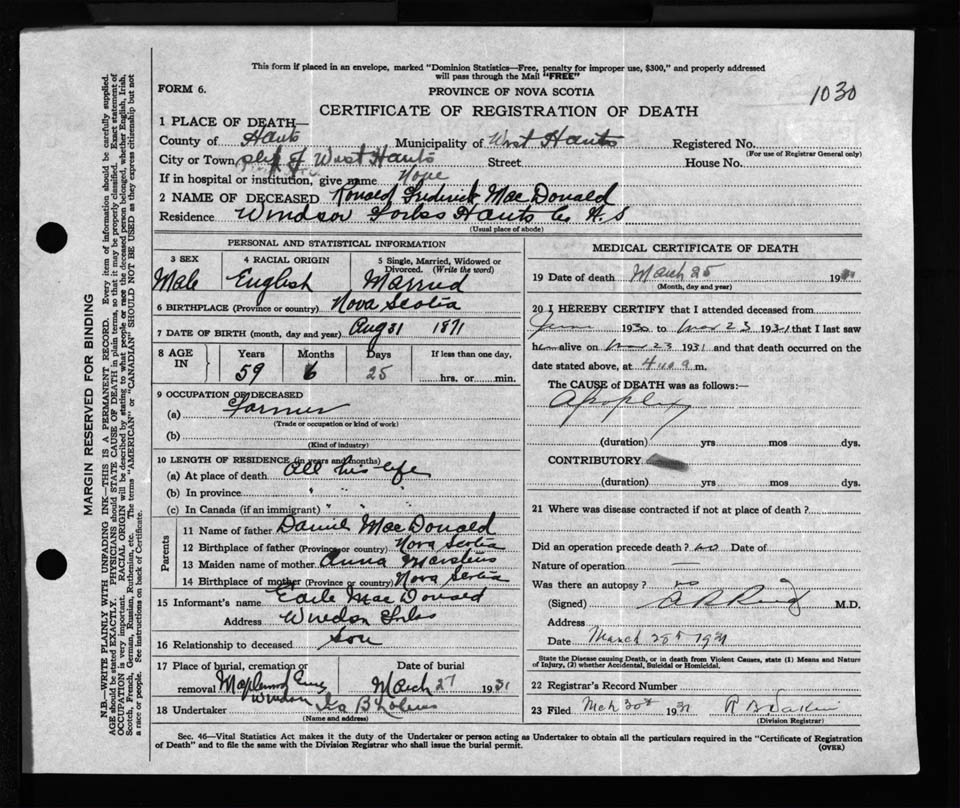 This form if placed in an envelope, marked "Dominion Statistics—Free, penalty for improper use, $300," and properly addressed
will pass through the Mail "FREE"
1030
FORM 6.
PROVINCE OF NOVA SCOTIA
CERTIFICATE OF REGISTRATION OF DEATH
1 PLACE OF DEATH—
County of Hants Municipality of West Hants Registered No.
(For use of Registrar General only)
City or Town of West Hants Street House No.
If in hospital or institution, give name None
2 NAME OF DECEASED Ronald Frederick MacDonald
Residence Windsor Forks Hants Co N.S
(Usual place of abode)
PERSONAL AND STATISTICAL INFORMATION
3 SEX 4 RACIAL ORIGIN 5 Single, Married, Widowed or
Divorced. (Write the word)
Male English Married
6 BIRTHPLACE (Province or country) Nova Scotia
7 DATE OF BIRTH (month, day and year) Aug 31 1871
8 AGE IN Years Months Days If less than one day,
59 6 25 hrs. or min.
9 OCCUPATION OF DECEASED
(a) Farmer
(Trade or occupation or kind of work)
(b)
(Kind of industry)
10 LENGTH OF RESIDENCE (in years and months)
(a) At place of death All his life
(b) In province " " "
(c) In Canada (if an immigrant) " "
Parents
11 Name of father Daniel MacDonald
12 Birthplace of father (Province or country) Nova Scotia
13 Maiden name of mother Anna
14 Birthplace of mother (Province or country) Nova Scotia
15 Informant's name Earle MacDonald
Address Windsor Forks
16 Relationship to deceased Son
17 Place of burial, cremation or Date of burial
removal Maplewood Cemy March 27 1931
Windsor
18 Undertaker
(Name and address)
MEDICAL CERTIFICATE OF DEATH
19 Date of death March 25 193
(Month, day and year)
20 I HEREBY CERTIFY that I attended deceased from
June 1930 to Mar 23 1931 that I last saw
him alive on Mar 23 1931 and that death occurred on the
date stated above, at 4 m.
The CAUSE of DEATH was as follows:—
Apoplexy
(duration) yrs mos dys.
CONTRIBUTORY
(duration) yrs mos dys.
21 Where was disease contracted if not at place of death?
Did an operation precede death? no Date of
Nature of operation —
Was there an autopsy? no
(Signed) M.D.
Address
Date March 28th 1931
State the Disease causing Death, or in death from Violent Causes, state (1) Means and Nature
of Injury, (2) whether Accidental, Suicidal or Homicidal.
22 Registrar's Record Number
23 Filed Mch 30th 1931
(Division Registrar)
Sec. 46—Vital Statistics Act makes it the duty of the Undertaker or person acting as Undertaker to obtain all the particulars required in the "Certificate of Registration
of Death" and to file the same with the Division Registrar who shall issue the burial permit.
(OVER)
MARGIN RESERVED FOR BINDING
N.B.—WRITE PLAINLY WITH UNFADING INK—THIS IS A PERMANENT RECORD. Every item of information should be carefully supplied.
AGE should be stated EXACTLY. PHYSICIANS should STATE CAUSE OF DEATH in plain terms, so that it may be properly classified. Exact statement of
OCCUPATION is very important. RACIAL ORIGIN will be described by stating to what people or race the deceased person belonged, whether English, Irish,
Scotch, French, German, Russian, Ruthenian, etc. The terms "AMERICAN" or "CANADIAN" SHOULD NOT BE USED as they express citizenship but not
a race or people. See instructions on back of Certificate.